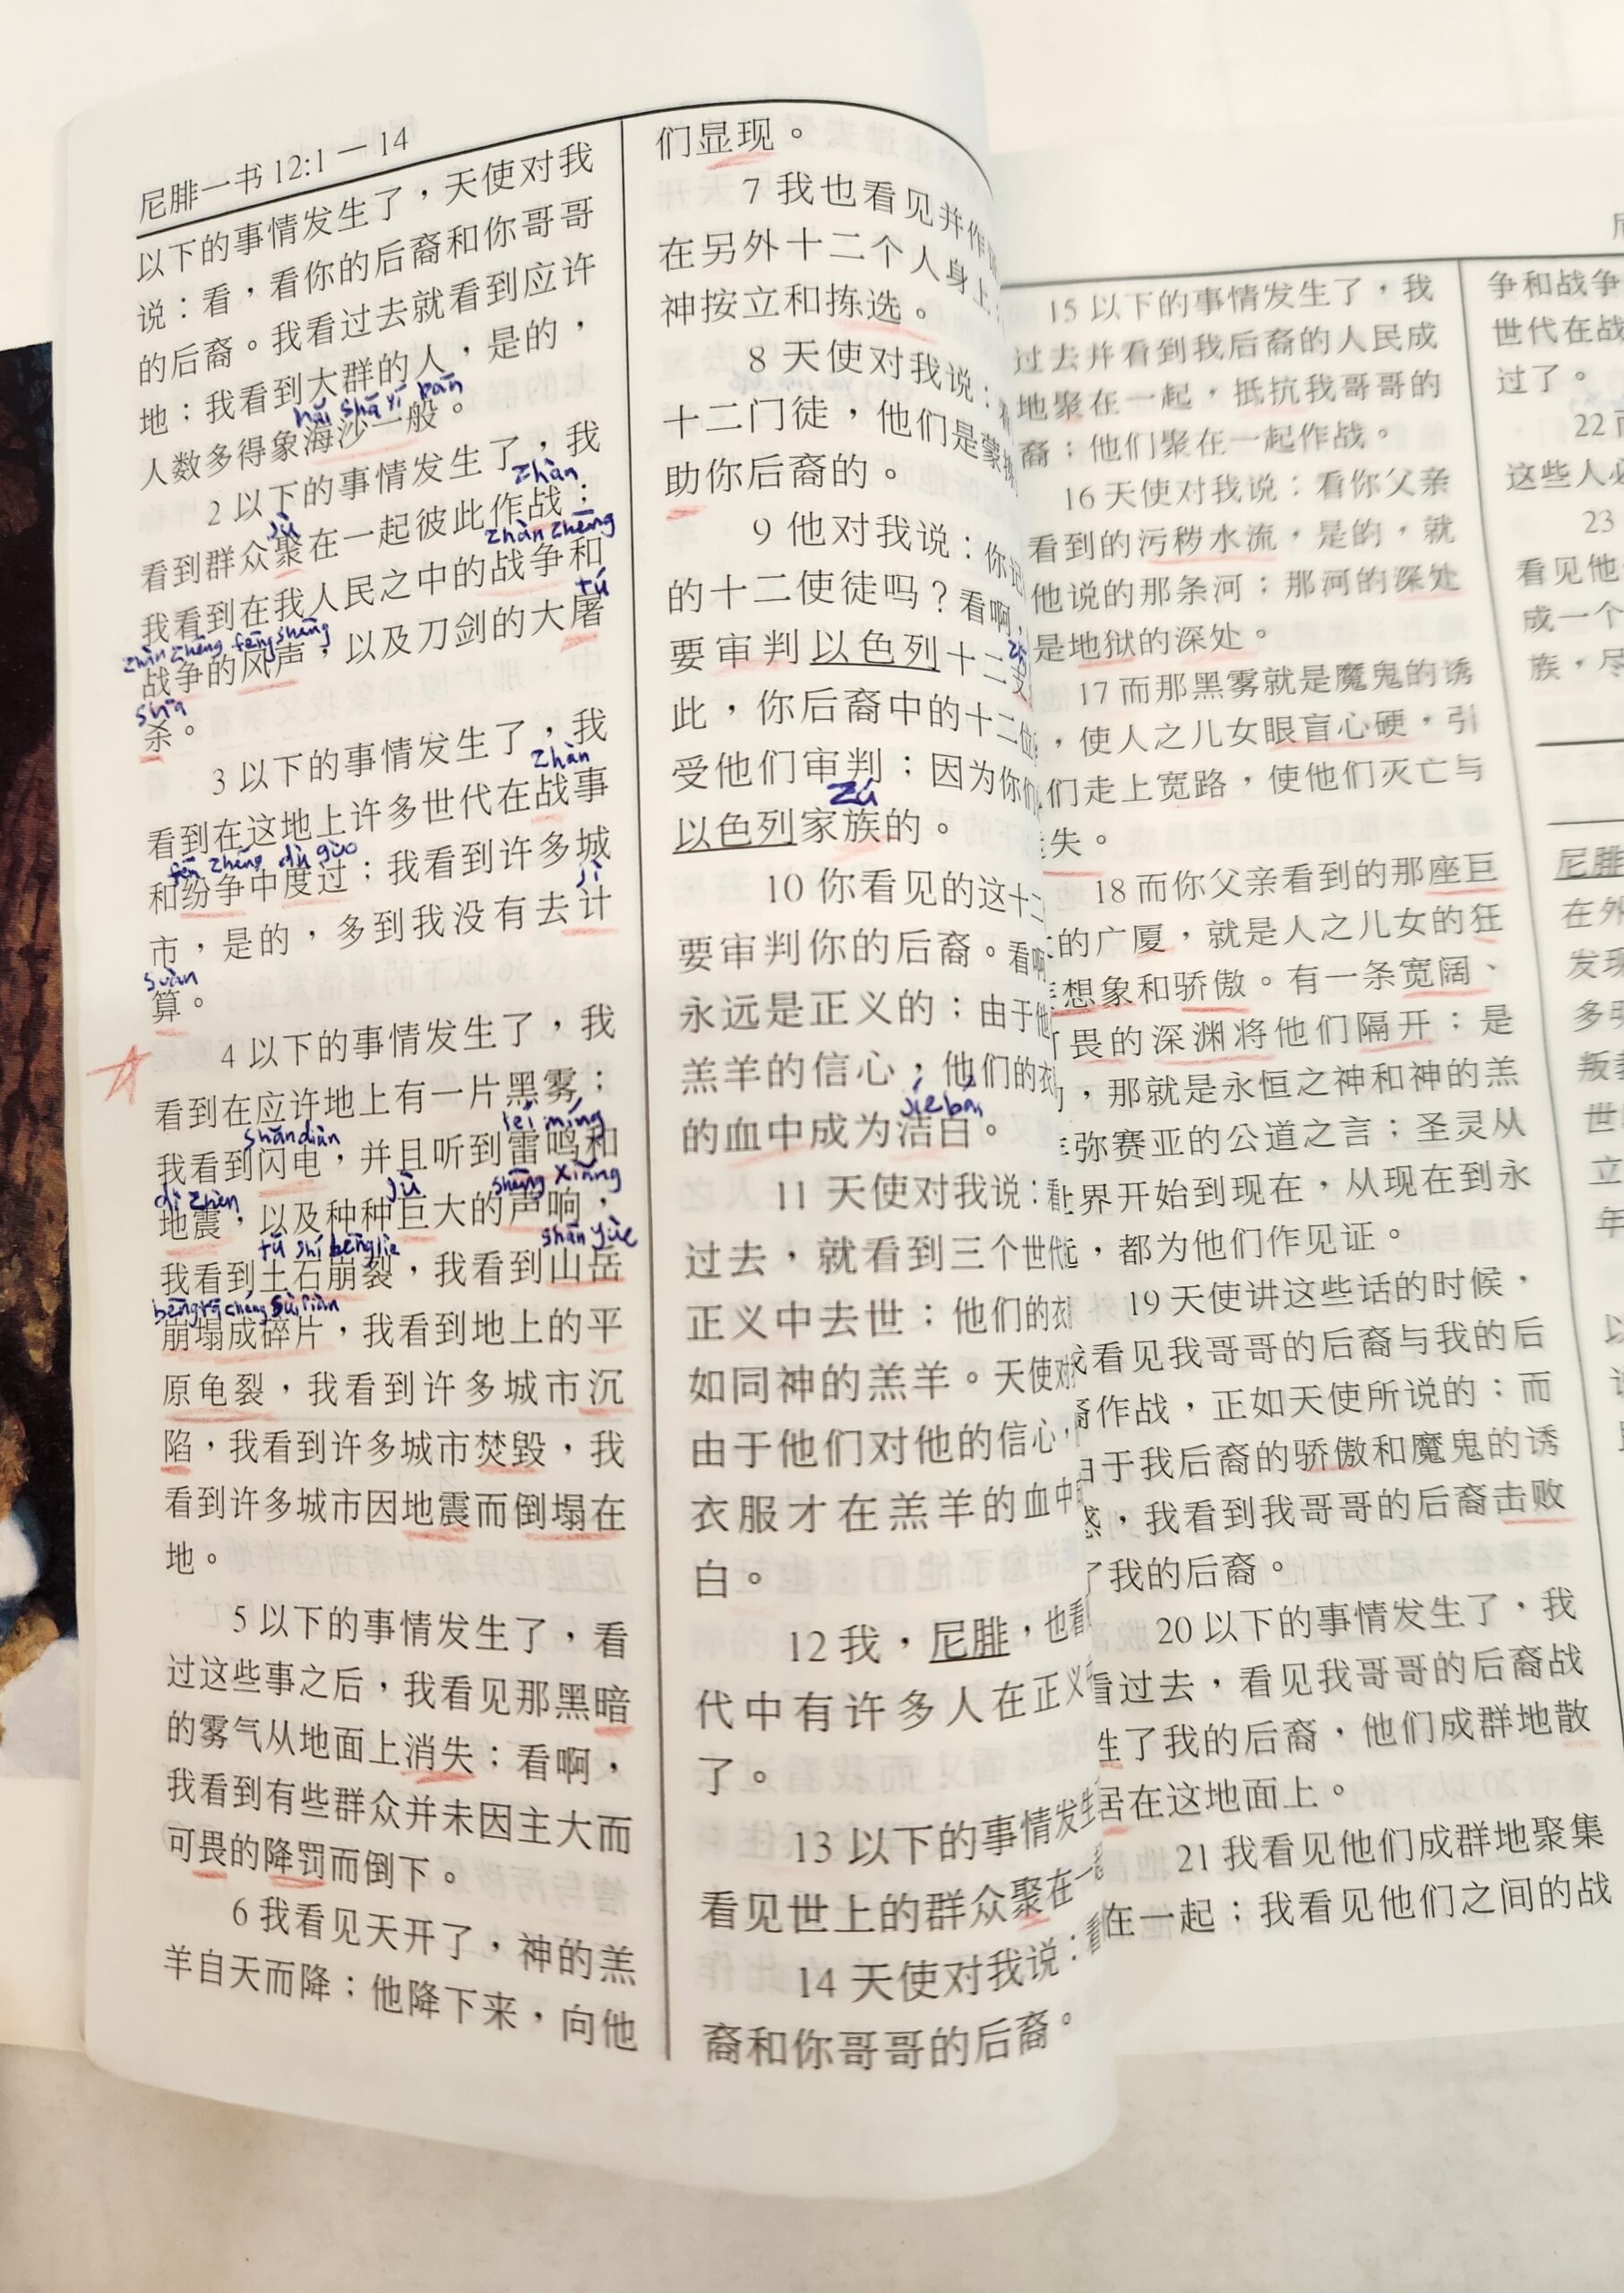 尼腓一书 12:1 — 14
以下的事情发生了，天使对我
说：看，看你的后裔和你哥哥
的后裔。我看过去就看到应许
地；我看到大群的人，是的，
hǎi shā yī bān
人数多得象海沙一般。
2 以下的事情发生了，我
zhàn
看到群众聚在一起彼此作战；
jù
zhàn zhēng
我看到在我人民之中的战争和
tú
zhàn zhēng fēng shēng
战争的风声，以及刀剑的大屠
shā
杀。
3 以下的事情发生了，我
zhàn
看到在这地上许多世代在战事
fēn zhēng dù guò
和纷争中度过；我看到许多城
jì
市，是的，多到我没有去计
suàn
算。
4 以下的事情发生了，我
看到在应许地上有一片黑雾；
shǎn diàn
léi míng
我看到闪电，并且听到雷鸣和
dì zhèn
jù
shēng xiǎng
地震，以及种种巨大的声响，
tǔ shí bēng liè
shān yüè
我看到土石崩裂，我看到山岳
bēng tā chéng suì piàn
崩塌成碎片，我看到地上的平
原龟裂，我看到许多城市沉
陷，我看到许多城市焚毁，我
看到许多城市因地震而倒塌在
地。
5 以下的事情发生了，看
过这些事之后，我看见那黑暗
的雾气从地面上消失；看啊，
我看到有些群众并未因主大而
可畏的降罚而倒下。
6 我看见天开了，神的羔
羊自天而降；他降下来，向他
们显现。
7 我也看见并作
在另外十二个人身上
神按立和拣选。
8 天使对我说：
十二门徒，他们是蒙拣
助你后裔的。
9 他对我说：你记
的十二使徒吗？看啊，
要审判以色列十二支
此，你后裔中的十二位
受他们审判；因为你们
zú
以色列家族的。
10 你看见的这十二
要审判你的后裔。看啊
永远是正义的；由于他
羔羊的信心，他们的衣
jié bái
的血中成为洁白。
11 天使对我说：看
过去，就看到三个世代
正义中去世；他们的衣
如同神的羔羊。天使对
由于他们对他的信心，
衣服才在羔羊的血中
白。
12 我，尼腓，也看
代中有许多人在正义
了。
13 以下的事情发生
看见世上的群众聚在一起
14 天使对我说：看
裔和你哥哥的后裔。
15 以下的事情发生了，我
过去并看到我后裔的人民成
地聚在一起，抵抗我哥哥的
裔；他们聚在一起作战。
16 天使对我说：看你父亲
看到的污秽水流，是的，就
他说的那条河；那河的深处
是地狱的深处。
17 而那黑雾就是魔鬼的诱
，使人之儿女眼盲心硬，引
们走上宽路，使他们灭亡与
失。
18 而你父亲看到的那座巨
的广厦，就是人之儿女的狂
想象和骄傲。有一条宽阔、
畏的深渊将他们隔开；是
，那就是永恒之神和神的羔
弥赛亚的公道之言；圣灵从
世界开始到现在，从现在到永
，都为他们作见证。
19 天使讲这些话的时候，
我看见我哥哥的后裔与我的后
裔作战，正如天使所说的；而
由于我后裔的骄傲和魔鬼的诱
惑，我看到我哥哥的后裔击败
了我的后裔。
20 以下的事情发生了，我
看过去，看见我哥哥的后裔战
胜了我的后裔，他们成群地散
居在这地面上。
21 我看见他们成群地聚集
在一起；我看见他们之间的战
争和战争
世代在战
过了。
22
这些人必
23
看见他
成一个
族，尽
尼腓
在外
发现
多
叛
世
立
年